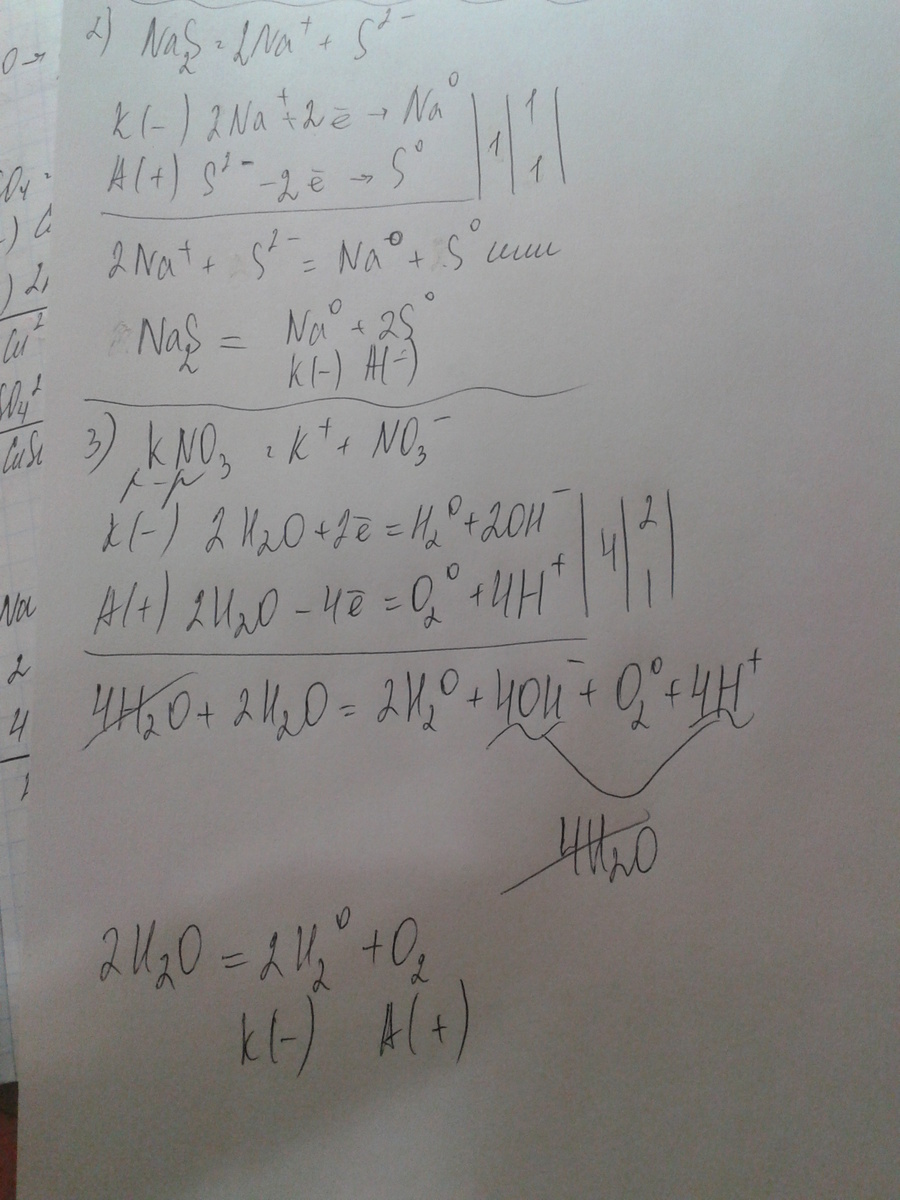 2) Na₂S = 2Na⁺ + S²⁻
K(-) 2Na⁺ + 2ē → Na⁰ | 1 | 1 |
A(+) S²⁻ - 2ē → S⁰ | 1 |
2Na⁺ + S²⁻ = Na⁰ + S⁰ или
Na₂S = Na⁰ + 2S⁰
K(-) A(-)
3) KNO₃ = K⁺ + NO₃⁻
р-р
K(-) 2H₂O + 2ē = H₂⁰ + 2OH⁻ | 4 | 2 |
A(+) 2H₂O - 4ē = O₂⁰ + 4H⁺ | 1 |
4H₂O + 2H₂O = 2H₂⁰ + 4OH⁻ + O₂⁰ + 4H⁺
4H₂O
2H₂O = 2H₂⁰ + O₂
K(-) A(+)